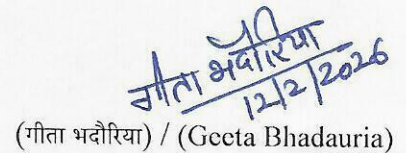 गीता भदौरिया
12/2/2026
(गीता भदौरिया) / (Geeta Bhadauria)